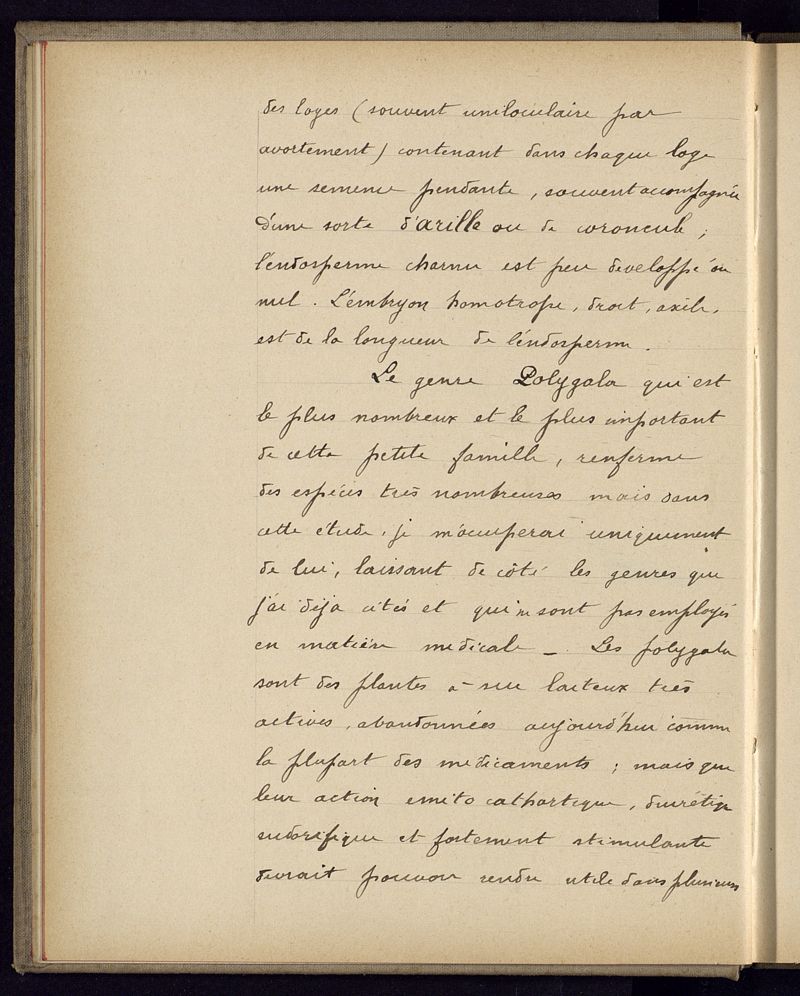 des loges (souvent uniloculaire par
avortement) contenant dans chaque loge
une semence pendante, souvent accompagnée
d'une sorte d'arille ou de caroncule ;
l'endosperme charnu est peu developpé ou
nul. L'embryon homotrope, droit, axile,
est de la longueur de l'éndosperme.
Le genre Polygala qui est
le plus nombreux et le plus important
de cette petite famille, renferme
des espéces très nombreuses mais dans
cette étude, je m'ocuperai uniquement
de lui, laissant de côté les genres que
j'ai dèja cités et qui ne sont pas employés
en matière medicale _. Les polygala
sont des plantes à suc laiteux très
actives, abandonnées aujourd'hui comme
la plupart des medicaments ; mais que
leur action emeto cathartique, diurétique
sudorifique et fortement stimulante
devrait pouvoir rendre utile dans plusieurs